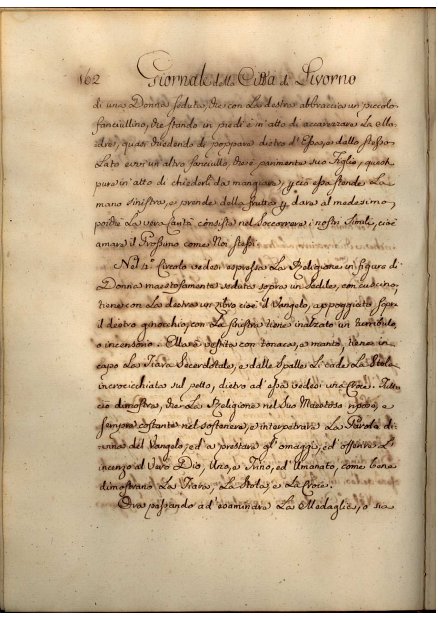 162 Giornale della Città di Livorno
di una Donna seduta, che con La destra abbraccia un piccolo
fanciullino, che stando in piedi è in atto di accarezzare La
Madre, quasi chiedendo di poppare dietro d'Essa, e dallo stesso
Lato evvi un altro fanciullo, che è parimente suo Figlio, quest
pure in atto di chiederLi da mangiare, essa stende La
mano sinistra, e prende della frutta dare al medesimo
poiche La vera Carità consiste nel Soccorrere i nostri Simili, cioè
amare il Prossimo come Noi stessi.
Nel 4.º Circolo vedesi espressa La Religione in figura di
Donna maestosamente seduta sopra un Sedile, con cuscino,
tiene con La destra un libro cioè il Vangelo, appoggiato sopra
il destro ginocchio, con La sinistra tiene inalzato un turribulo,
o incensorio. Ella è vestita con tonaca, e manto, tiene in
capo La Tiara Sacerdotale, e dalle Spalle Li cade La Stola
incrocicchiata sul petto, dietro ad essa vedesi una Croce. Tut-
ciò dimostra, che La Religione nel Suo Maestoso riposo, è
sempre costante nel sostenere, e interpetrare La Parola di-
vina del Vangelo, ed a prestare gl'omaggi, ed offerire L'
incenzo al Vero Dio, Uno, e Trino, ed Umanato, come bene
dimostrano La Tiara, La Stola, e La Croce.
Ora passando ad esaminare La Medaglia, o sia